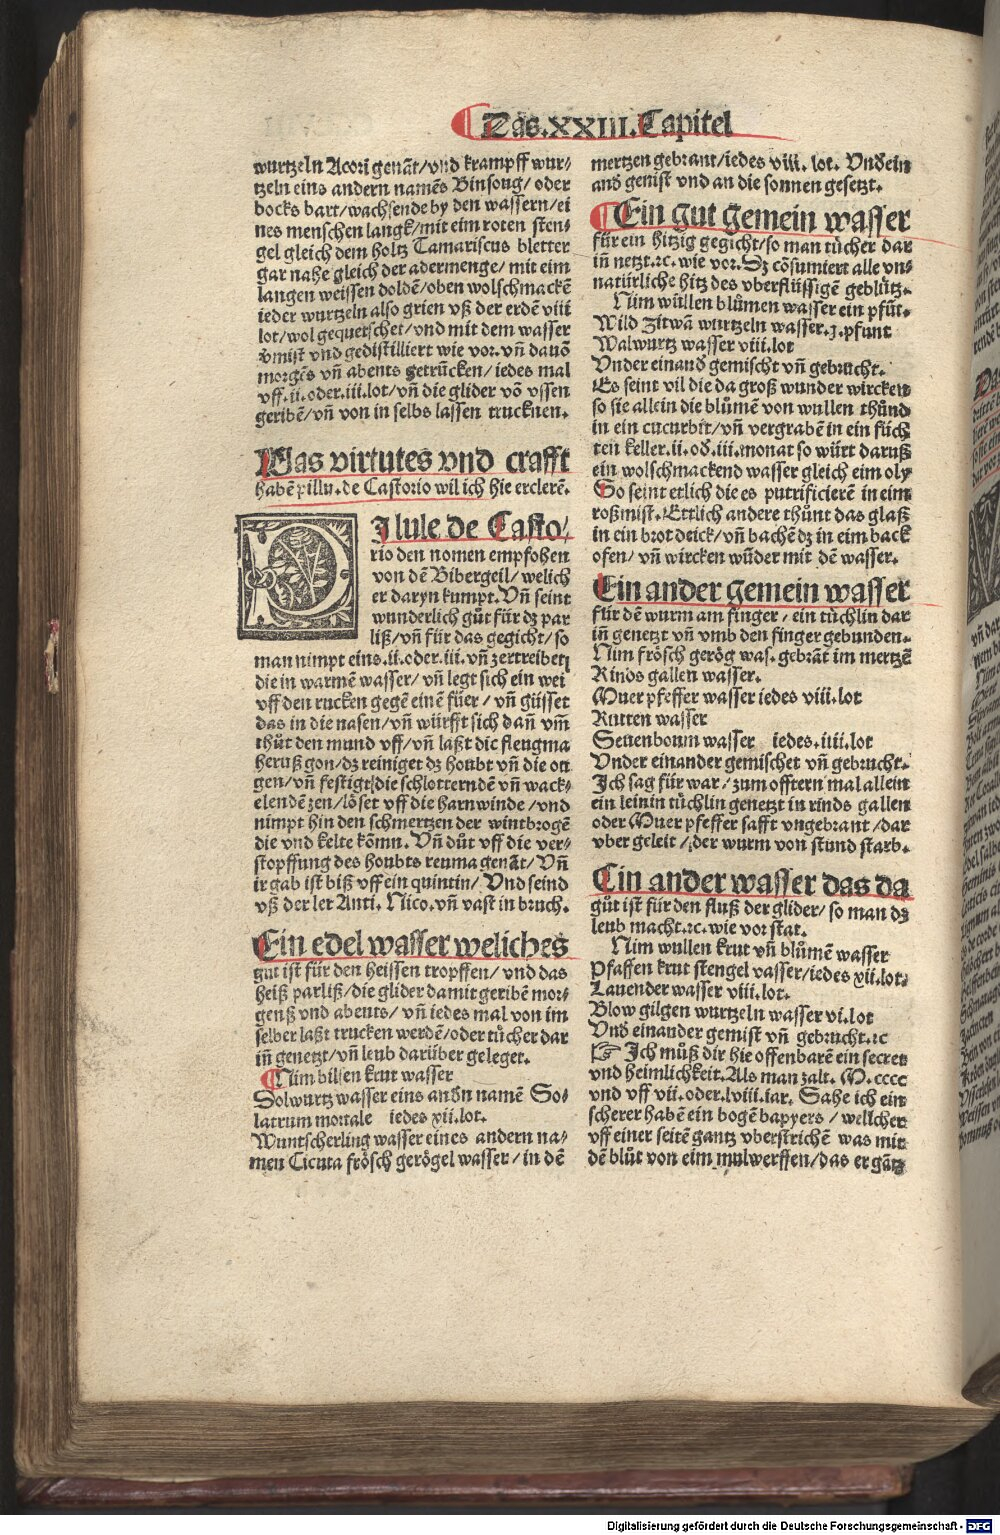 Das.XXIII.Capitel
wurtzeln Acori genāt/vnd krampff wur⸗
tzeln eins andern namēs Binsoug/oder
bocks bart/wachsende by den wassern/ei
nes menschen langk/mit eim roten sten⸗
gel gleich dem holtz Tamariscus bletter
gar nahe gleich der adermenge/mit eim
langen weissen doldē/oben wolschmackē
ieder wurtzeln also grien vß der erdē viii
lot/wol gequetschet/vnd mit dem wasser
vmist vnd gedistilliert wie vor.vñ dauō
morgēs vñ abents getrücken/iedes mal
vff.ii.oder.iii.lot/vñ die glider vō vssen
geribē/vñ von in selbs lassen trucknen.
Was virtutes vnd crafft
habē pillu.de Castorio wil ich hie erclerē.
PIlule de Casto/
rio den nomen empfohen
von dē Bibergeil/welich
er daryn kumpt.Vñ seint
wunderlich gůt für dz par
liß/vñ für das gegicht/so
man nimpt eins.ii.oder.iii.vñ zertreibet
die in warmē wasser/vñ legt sich ein wei
vff den rucken gegē einē füer/vñ güsset
das in die nasen/vñ würfft sich dañ vm̄
thůt den mund vff/vñ laßt die fleugma
heruß gon/dz reiniget dz houbt vñ die ou
gen/vñ festigt die schlotterndē vñ wack⸗
elendē zen/löset vff die harnwinde/vnd
nimpt hin den schmertzen der wintbrogē
die vnd kelte kōmn. Vñ důt vff die ver⸗
stopffung des houbts reuma genāt/Vñ
ir gab ist biß vff ein quintin/Vnd seind
vß der ler Anti. Nico.vñ vast in bruch.
Ein edel wasser weliches
gut ist für den heissen tropffen/vnd das
heiß parliß/die glider damit geribē mor⸗
genß vnd abents/vñ iedes mal von im
selber laßt trucken werdē/oder tůcher dar
iñ genetzt/vñ leub darüber geleget.
Nim bilsen krut wasser
Dolwurtz wasser eins andn namē So⸗
latrum mortale iedes xii.lot.
Wuntscherling wasser eines andern na⸗
men Cicuta frösch gerögel wasser/in dē
mertzen gebrant/iedes viii.lot. Vnd ein
and genist vnd an die sonnen gesetzt.
Ein gut gemein wasser
für ein hitzig gegicht/so man tůcher dar
iñ netzt.ꝛc.wie vor.Dz cōsumiert alle vn⸗
natürliche hitz des vberflüssigē geblůtz.
Nim wüllen blůmen wasser ein pfūt.
Wild zitwā wurtzeln wasser.j.pfunt
Walwurtz wasser viii.lot
Vnder einand gemischt vñ gebrucht.
Es seint vil die da groß wunder wircken
so sie allein die blůmē von wullen thůnd
in ein cucurbit/vñ vergrabē in ein füch
ten keller.ii.od.iii.monat so würt daruß
ein wolschmackend wasser gleich eim oly
So seint etlich die es putrificierē in eim
roßmist.Ettlich andere thůnt das glaß
in ein brot deick/vñ bachē dz in eim back
ofen/vñ wircken wūder mit dē wasser.
Ein ander gemein wasser
für dē wurm am finger/ein tůchlin dar
iñ genetzt vñ vmb den finger gebunden.
Nim frösch gerög was.gebrāt im mertzē
Rinds gallen wasser.
Muer pfeffer wasser iedes viii.lot
Rutten wasser
Seuenboum wasser iedes.iiii.lot
Vnder einander gemischet vñ gebrucht.
Ich sag für war/zum offtern mal allein
ein leinin tůchlin genetzt in rinds gallen
oder Muer pfeffer safft vngebrant/dar
vber geleit/der wurm von stund starb.
Ein ander wasser das da
gůt ist für den fluß der glider/so man dz
leub macht.ꝛc.wie vor stat.
Nim wullen krut vñ blůmē wasser
Pfaffen krut stengel vasser/iedes xii.lot.
Lauender wasser viii.lot.
Blow gilgen wurtzeln wasser vi.lot
Vnd einander gemist vñ gebrucht.ꝛc
☞ Ich můß dir hie offenbarē ein secret
vnd heimlichkeit.Als man zalt. M.cccc
vnd vff vii.oder.lviii.iar. Sahe ich ein
scherer habē ein bogē bapyers/wellcher
vff einer seitē gantz vberstrichē was mit
dē blůt von eim mulwerffen/das er gātz
Digitalisierung gefördert durch die Deutsche Forschungsgemeinschaft - DFG